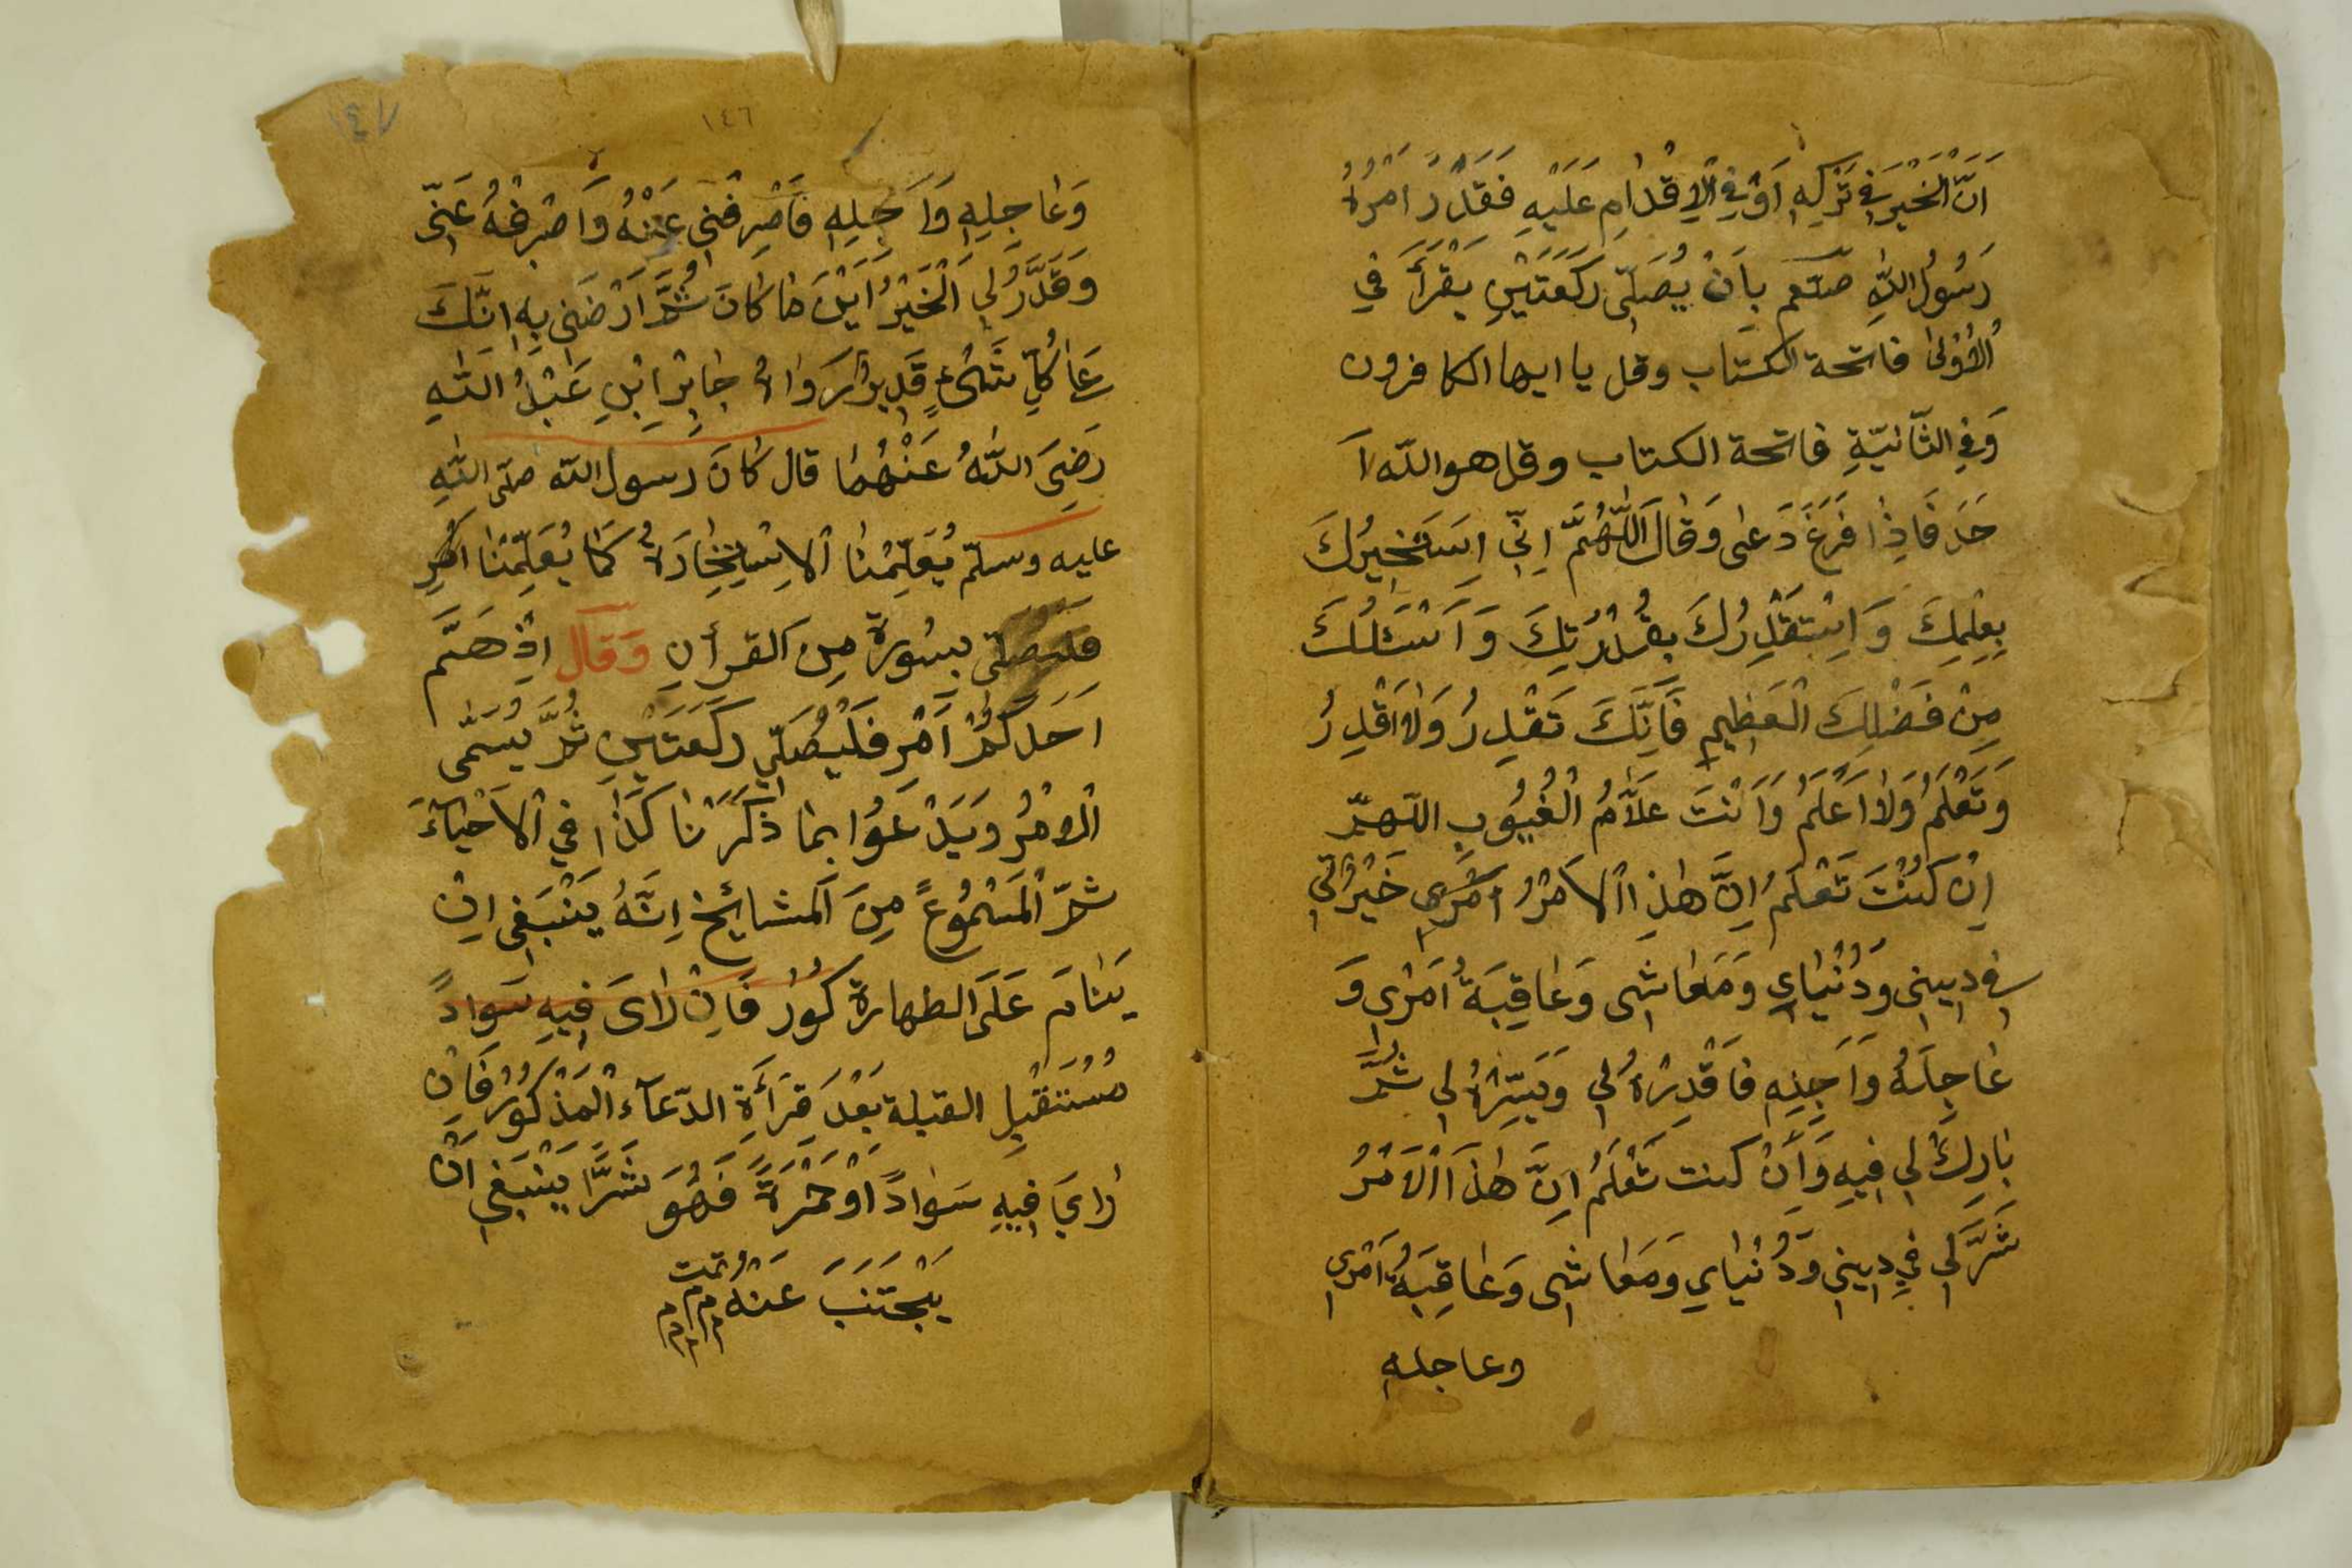 اَنَّ الْخَيْرَ فِي تَرْكِهِ اَوْ فِي الْاِقْدَامِ عَلَيْهِ فَقَدْ اَمَرَهُ
رَسُولُ اللّٰهِ صلعم بِاَنْ يُصَلِّى رَكَعَتَيْنِ يَقْرَأَ فِي
الْاُوْلٰى فاتحة الكتاب وقل يا ايها الكافرون
وَفِي الثَّانِيَّةِ فاتحة الكتاب وقل هو اللّه ا
حَد فَاِذَا فَرَغَ دَعٰى وَقَالَ اَللّٰهُمَّ اِنِّى اِسَتَخِيرُكَ
بِعِلمِكَ وَ اِسْتَقْدِرُكَ بِقُدْرَتِكَ وَ اَسْئَلُكَ
مِنْ فَضْلِكَ الْعَظِيمِ فَاِنَّكَ تَقْدِرُ وَلَا اَقْدِرُ
وَتَعْلَمُ وَلَا اَعْلَمُ وَاَنْتَ عَلَّامُ الْغُيُوبِ اللّهمّ
اِنْ كُنْتَ تَعْلَمُ اِنَّ هٰذِا الْاَمْرُ اَمْرِى خَيْرٌ لِي
فِي دِيِنِى وَدُنْيَايِ وَمَعَاشِى وَعَاقِبَةُ اَمْرِى وَ
عَاجِلَهُ وَاَجِلِهِ فَاقْدِرْهُ لِي وَيَسِّرْهُ لِي ثُمَّ
بَارِكْ لِي فِيهِ وَاَنْ كنت تَعْلَمُ اِنَّ هٰذَا الْاَمْرُ
شَرٌّ لِي فِي دِيِنِي وَدُنْيَايِ وَمَعَاشِى وَعَاقِبَةُ اَمْرِي
وعاجله
١٤٦
١٤٧
وَعَاجِلِهِ وَاَجِلِهِ فَاَصْرِفْنِى عَنْهُ وَاصْرِفْهُ عَنِّى
وَقَدِّرْ لِي الْخَيْرُ اَيْنَ مَا كَانَ ثُمَّ اَرْضَنِى بِهِ اِنَّكَ
عَلٰى كُلِّ شَيْءٍ قَدِيرٌ رَوَاهُ جَابِرِ ابْنِ عَبْدُ اللّٰهِ
رَضِيَ اللّٰهُ عَنْهُمَا قال كَانَ رسول اللّه صلّى اللّٰهِ
عليه وسلّم يُعَلِّمُنَا الْاِسْتِخَارَةُ كَمَا يُعَلِّمُنَا
بِسُورَةٍ مِنَ القرأنِ وَقَال اِذْ هَمَّ
اَحَدَكُمْ اَمْرِ فَلْيُصَلِّي رَكَعَتَيْنِ ثُمَّ يُسَمّٰى
الْاَمْرُ وَيَدْعَوُا بِمَا ذَكَرْنَا كَذَا فِي الْاَحْيَاءِ
ثمّ الْمَسْمُوعً مِنَ اَلمشايخ اِنَّهُ يَنْبَغِى اِنْ
يَنَامَ عَلَى الطهارة كور فَاِنْ رَاىَ فِيهِ سَوادً
مُسْتَقْبِلِ القبلة بَعْدَ قِرَأَةِ الدّعَآء الْمَذْكُورُ فَاِنْ
رَايَ فِيهِ سَوَادً اَوْ حُمْرَةً فَهُوَ شَرًّا يَنْبَغِى اَنْ
يَجْتَنَبَ عَنْهُ تمت
م م م م م م